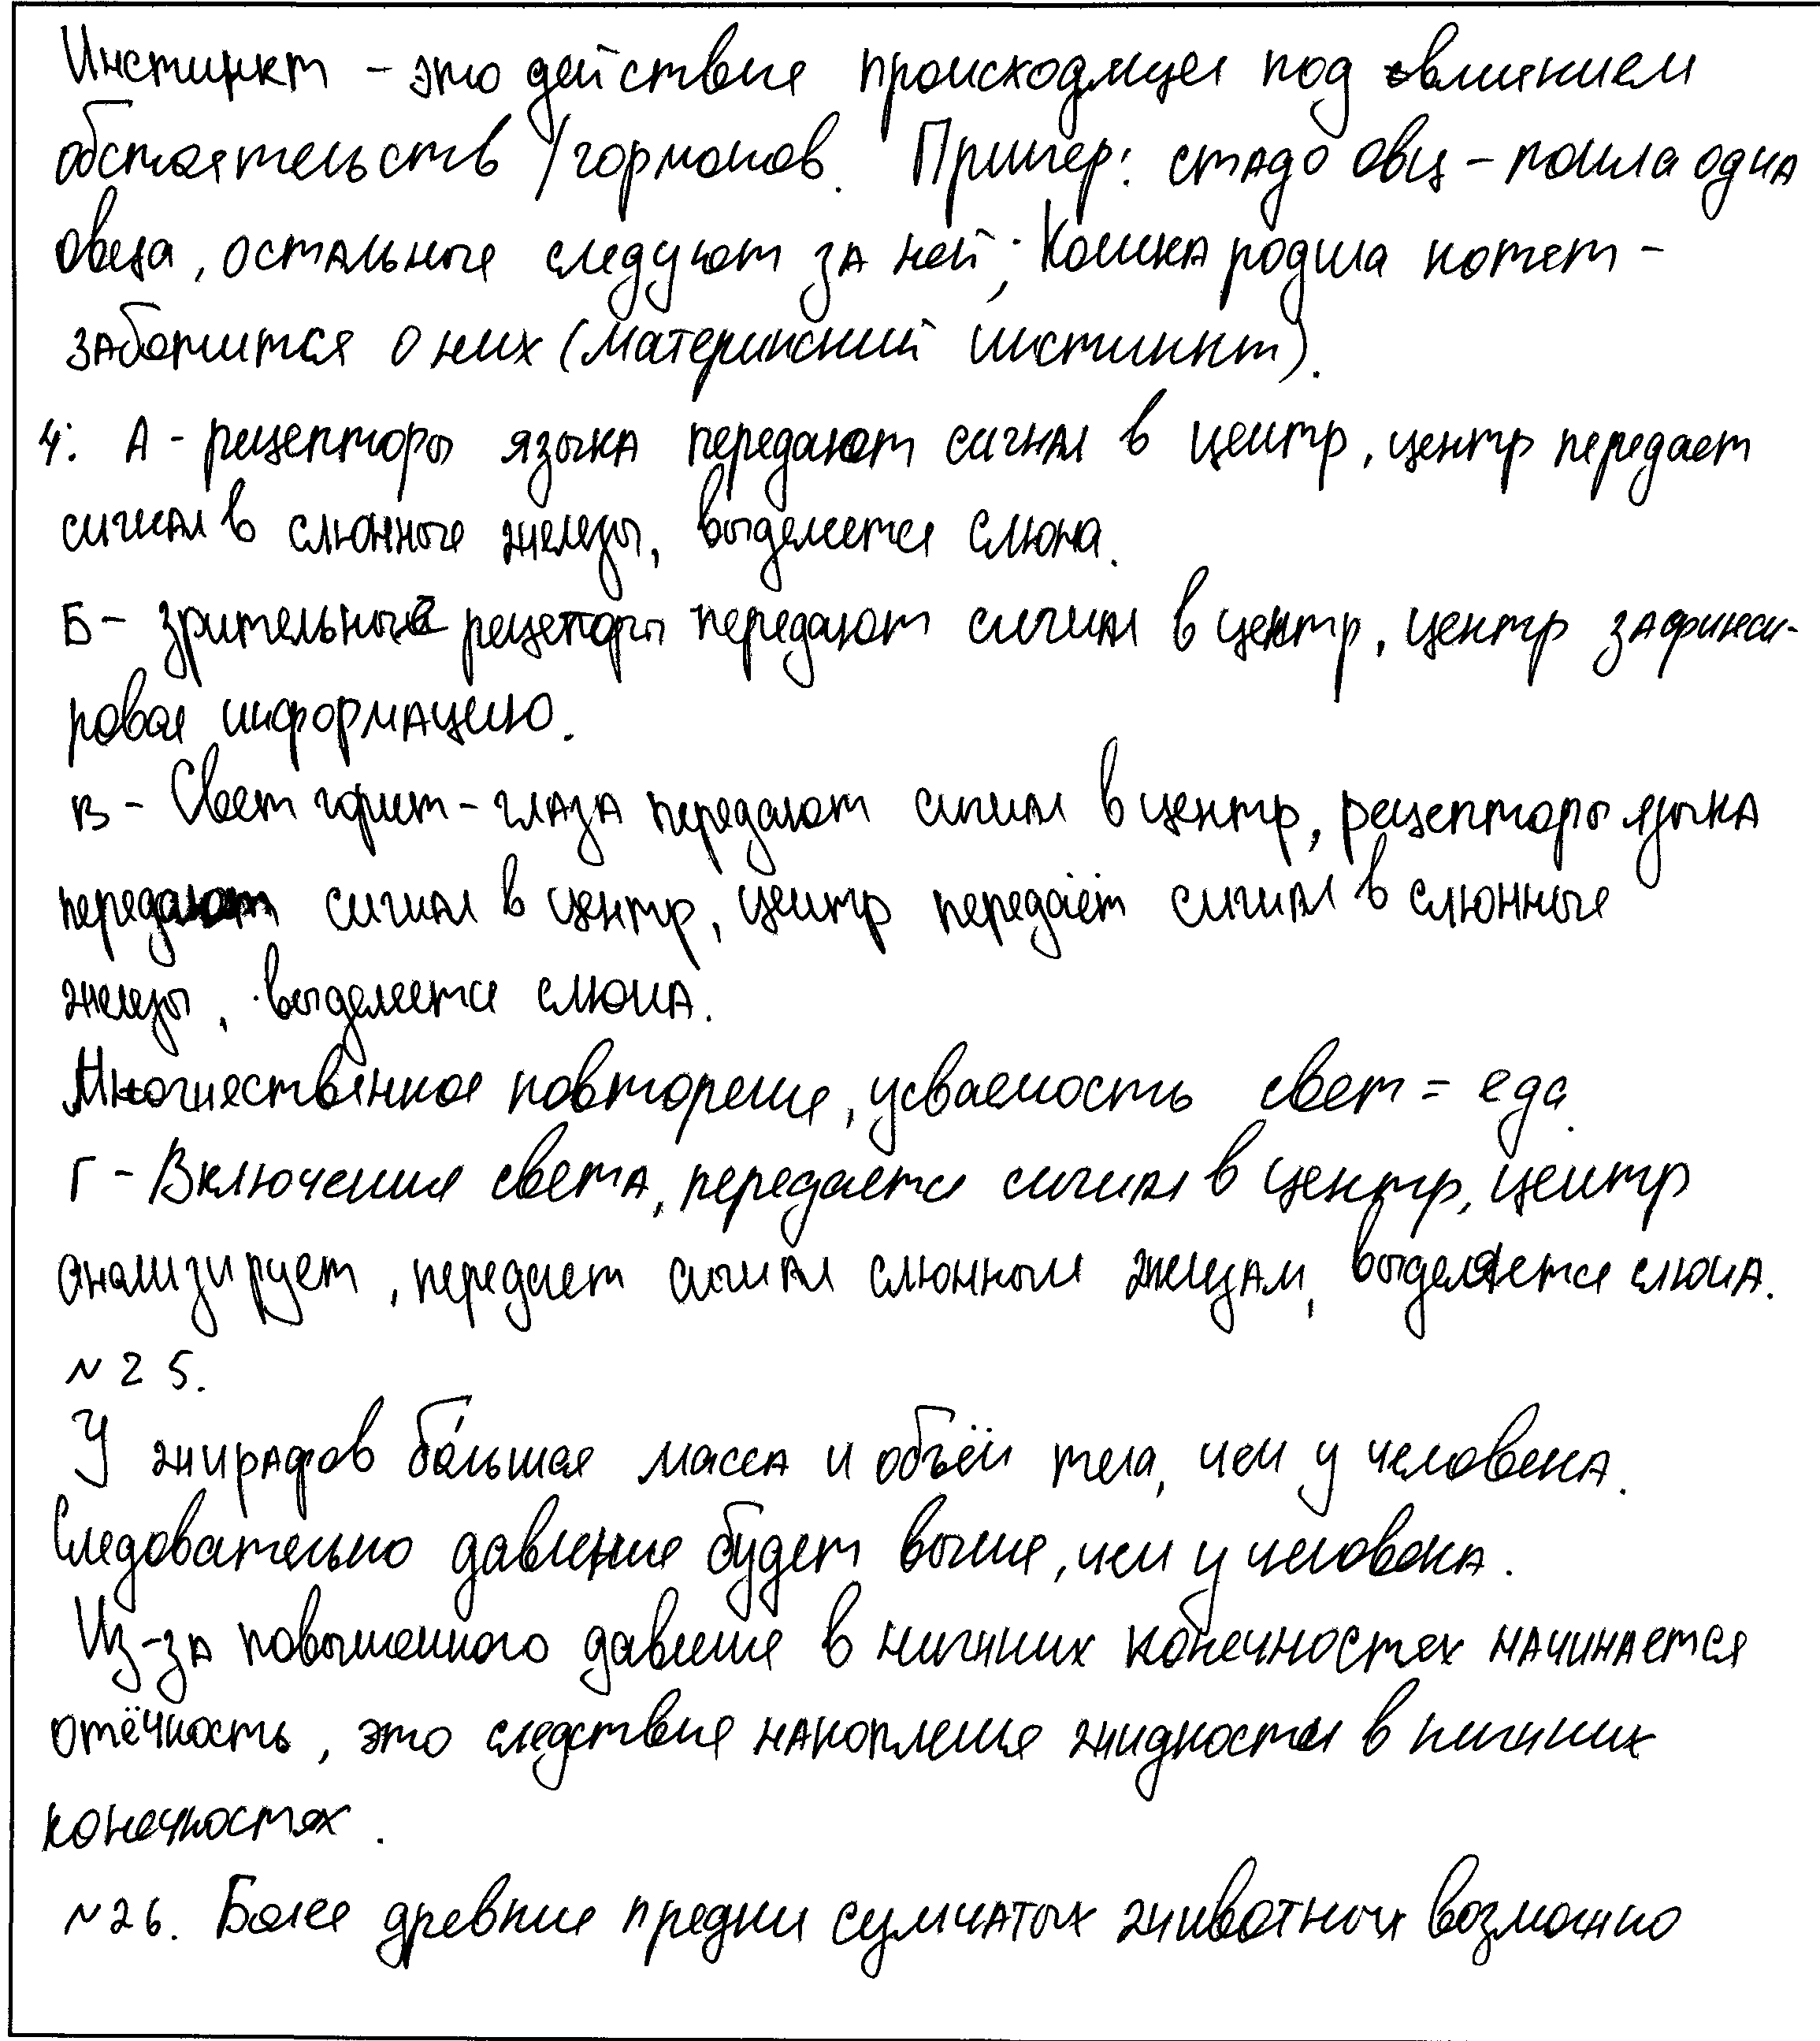 Инстинкт - это действие происходящее под влиянием
обстоятельств / гормонов. Пример: стадо овц - пошла одна
овеца, остальные следуют за ней; Кошка родила котят -
заботится о них (материнский инстинкт).
4. А - рецепторы языка передают сигнал в центр, центр передает
сигнал в слюнные железы, выделяется слюна.
Б - зрительные рецепторы передают сигнал в центр, центр зафикси-
ровал информацию.
В - Свет горит - глаза передают сигнал в центр, рецепторы языка
передают сигнал в центр, центр передаёт сигнал в слюнные
железы, выделяется слюна.
Множественное повторение, усваемость свет = еда.
Г - Включения света, передается сигнал в центр, центр
анализирует, передает сигнал слюнным железам, выделяется слюна.
№ 25.
У жирафов бо́льшая масса и объём тела, чем у человека.
Следовательно давление будет выше, чем у человека.
Из-за повышенного давление в нижних конечностях начинается
отёчность, это следствие накопление жидкости в нижних
конечностях.
№26. Более древние предки сумчатых животных возможно